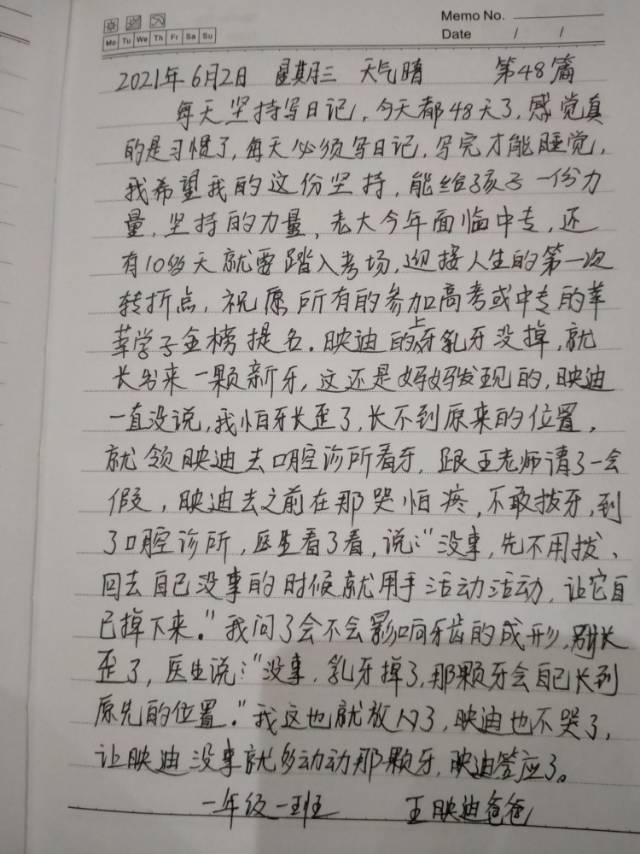 Memo No.
Mo Tu We Th Fr Sa Su
Date / /
2021年6月2日 星期三 天气晴 第48篇
每天坚持写日记,今天都48天了,感觉真
的是习惯了,每天必须写日记,写完才能睡觉,
我希望我的这份坚持,能给孩子一份力
量,坚持的力量,老大今年面临中专,还
有10多天就要踏入考场,迎接人生的第一次
转折点,祝愿所有的参加高考或中专的莘
莘学子金榜提名.映迪的上牙乳牙没掉,就
长出来一颗新牙,这还是妈妈发现的,映迪
一直没说,我怕牙长歪了,长不到原来的位置,
就领映迪去口腔诊所看牙,跟王老师请了一会
假,映迪去之前在那哭怕疼,不敢拔牙,到
了口腔诊所,医生看了看,说:"没事,先不用拔、
回去自己没事的时候就用手活动活动,让它自
己掉下来。"我问了会不会影响牙齿的成形,别长
歪了,医生说:"没事,乳牙掉了,那颗牙会自己长到
原先的位置."我这也就放心了,映迪也不哭了,
让映迪没事就多动动那颗牙,映迪答应了。
一年级一班 王映迪爸爸